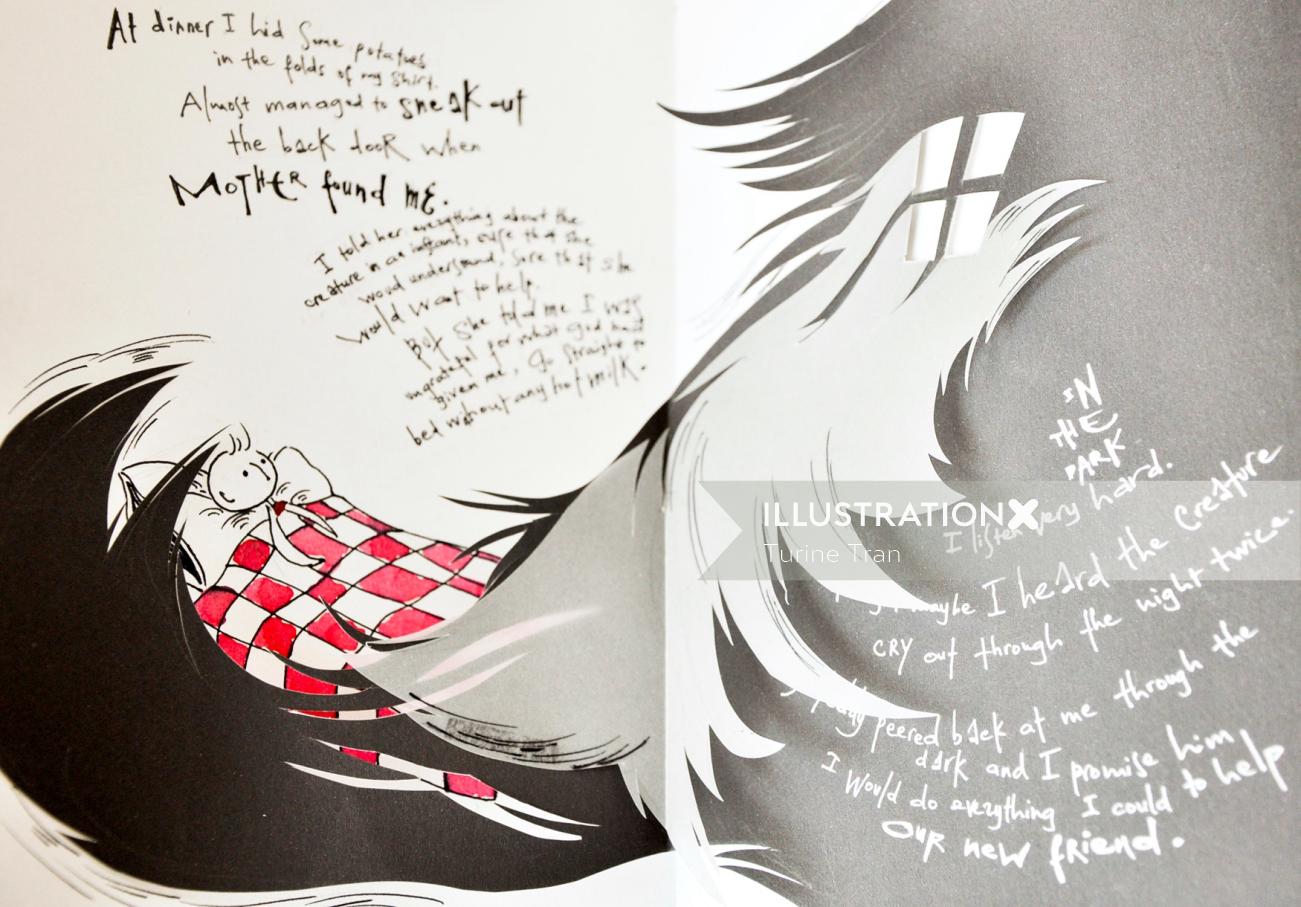 At dinner I hid some potatoes
in the folds of my shirt.
Almost managed to sneak out
the back door when
MOTHER found ME.
I told her everything about the
creature in an instant, sure that she
woud understand, sure that she
would want to help.
But she told me I was
ungrateful for what god had
given me, go straight to
bed without any hot milk.
IN
THE
DARK
I listen very hard.
maybe I heard the creature
CRY out through the night twice.
peered back at me through the
dark and I promise him
I would do everything I could to help
OUR new friend.
ILLUSTRATIONX
Turine Tran